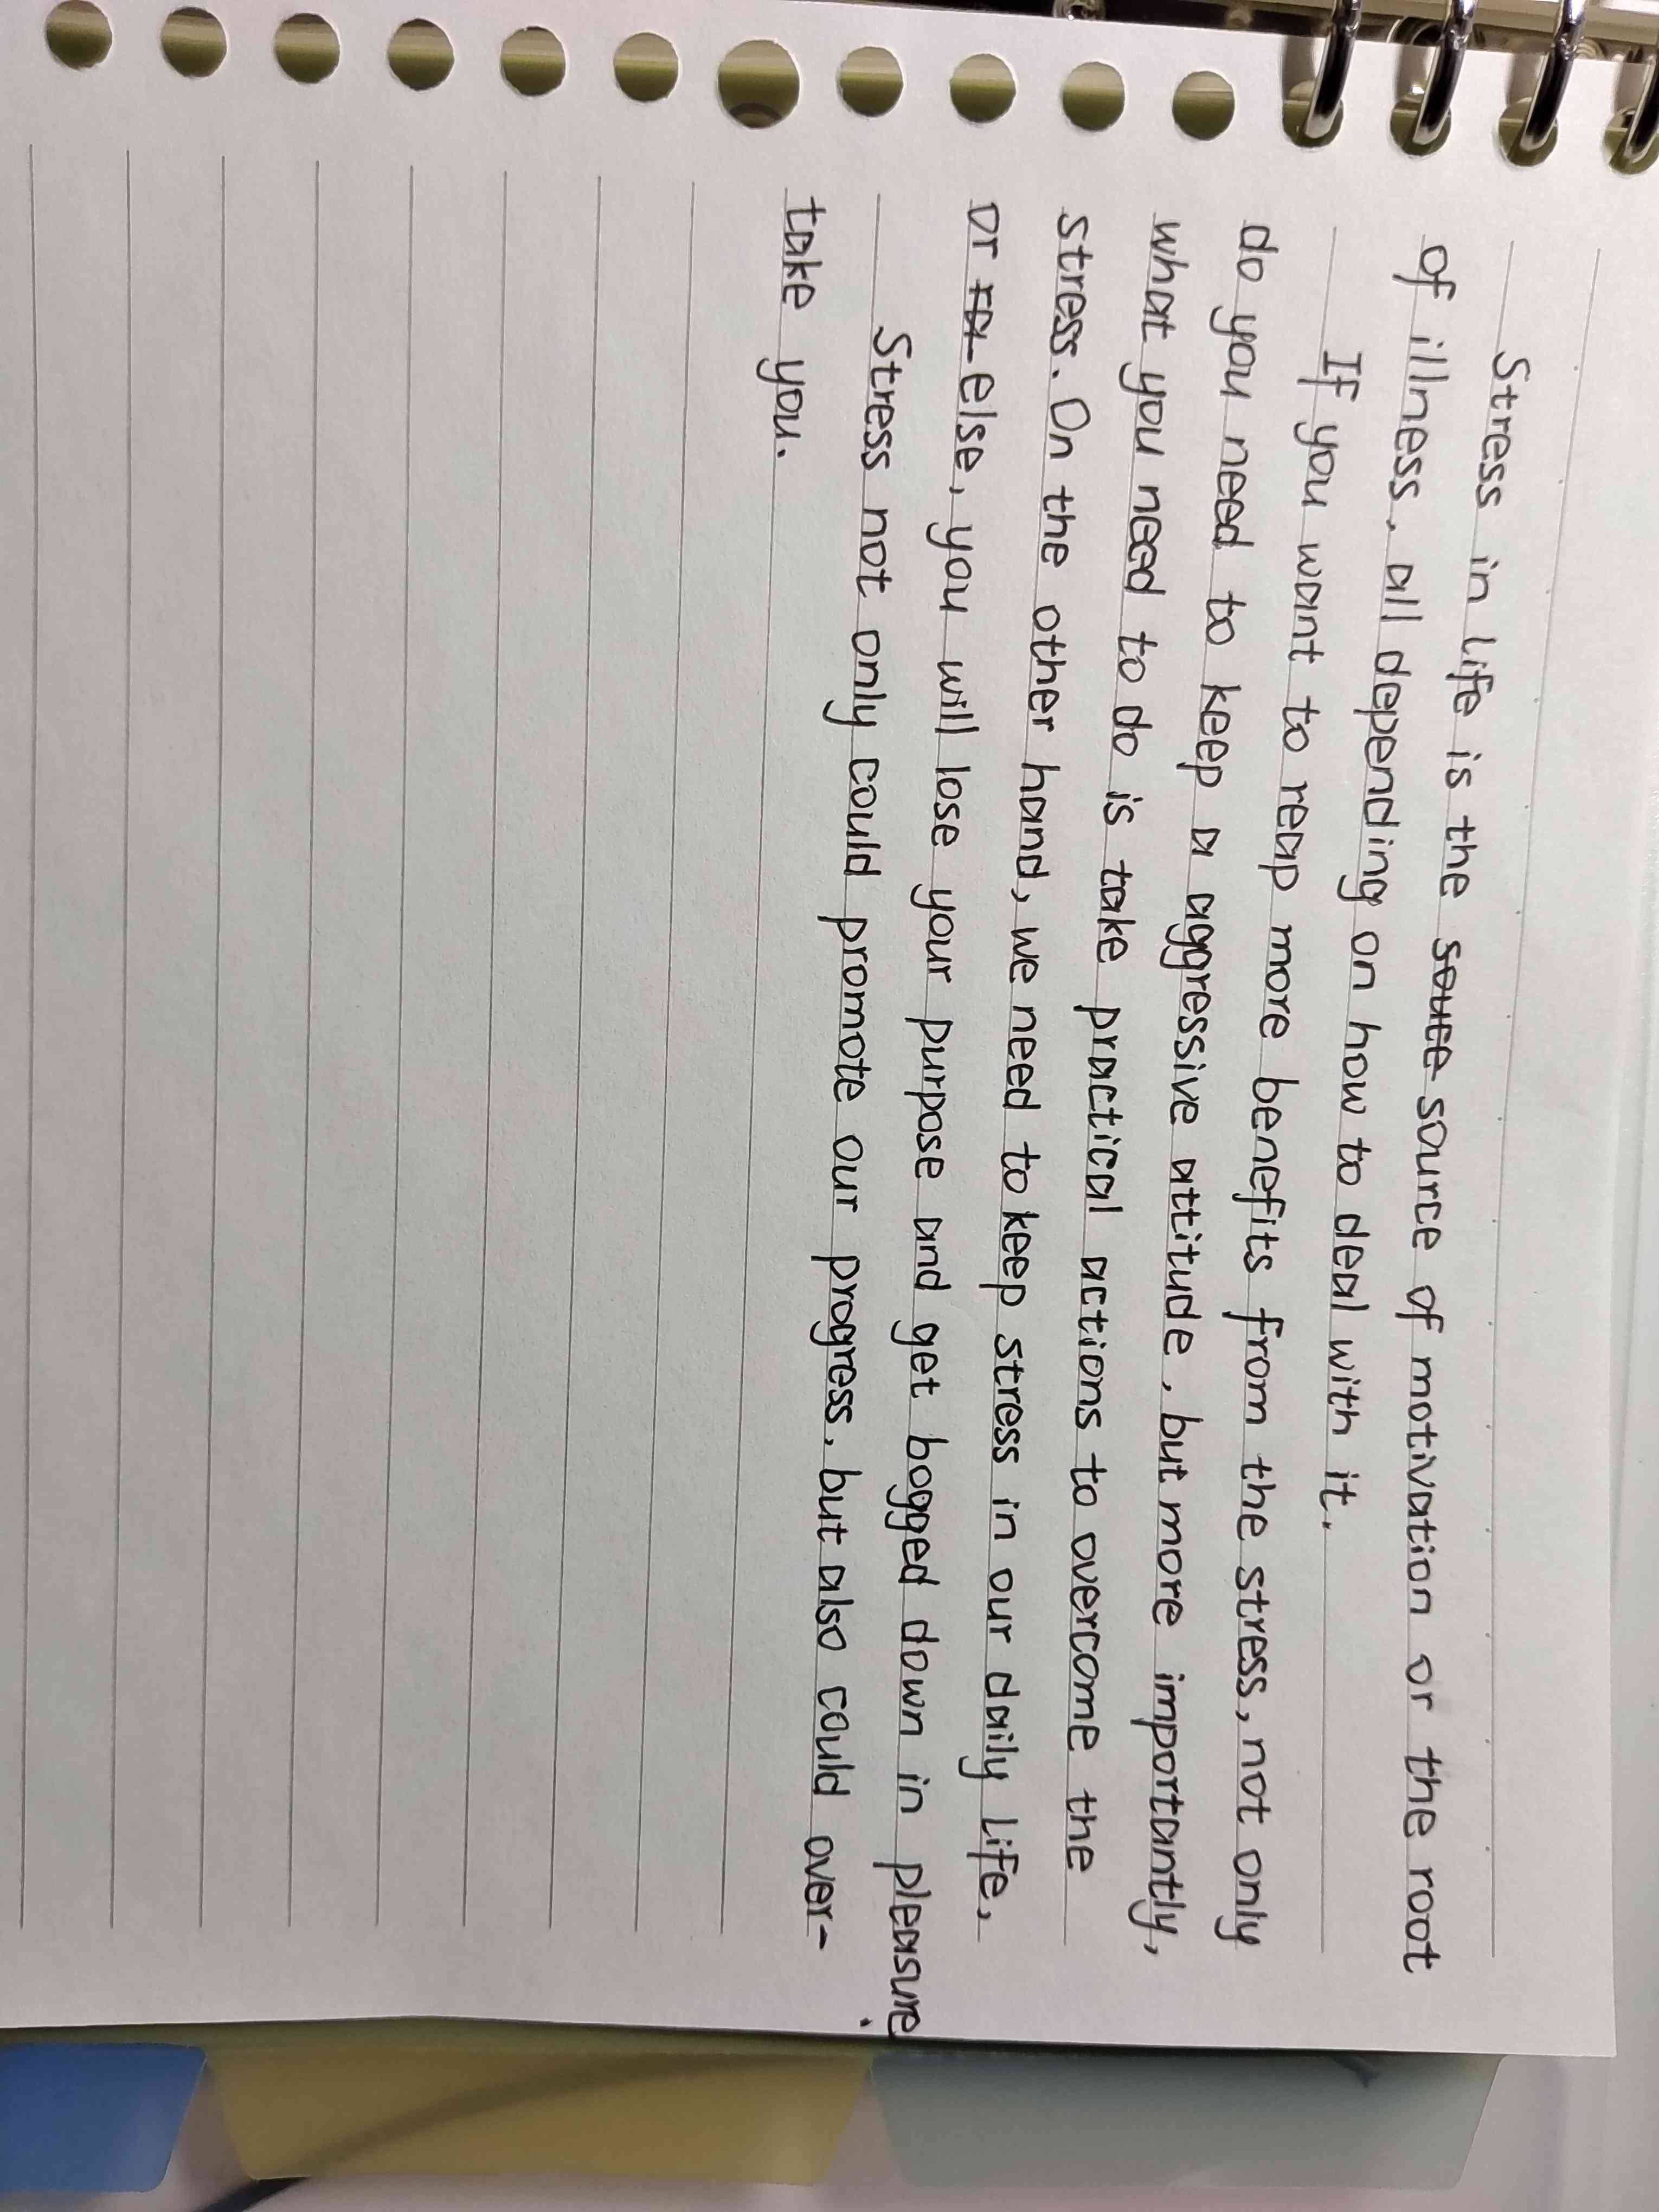 Stress in life is the source of motivation or the root
of illness, all depending on how to deal with it.
If you want to reap more benefits from the stress, not only
do you need to keep a aggressive attitude, but more importantly,
what you need to do is take practical actions to overcome the
stress. On the other hand, we need to keep stress in our daily life,
or else, you will lose your purpose and get bogged down in pleasure.
Stress not only could promote our progress, but also could over-
take you.